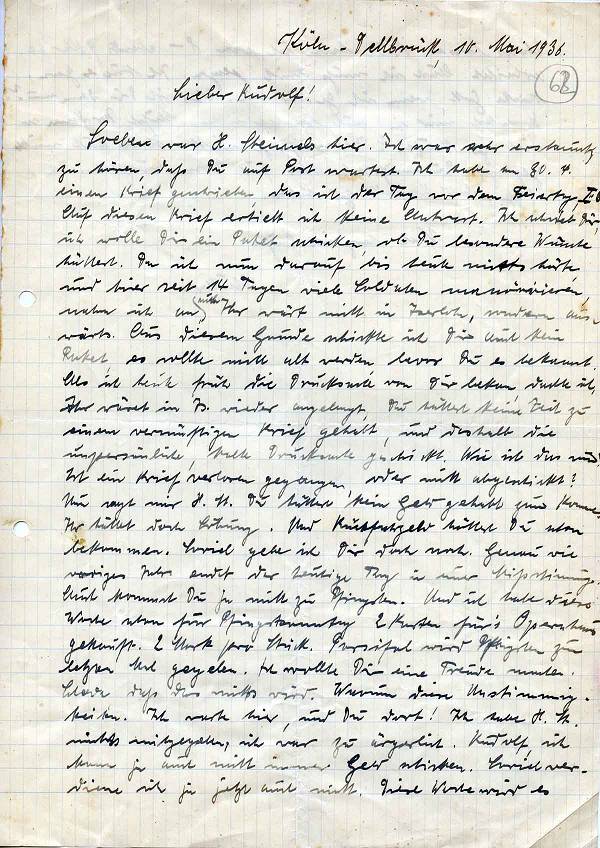 Köln - Dellbrück, 10. Mai 1936.
63
Lieber Rudolf!
Soeben war H. Steinmels hier. Ich war sehr erstaunt
zu hören, daß Du auf Post wartest. Ich habe am 30. 4.
einen Brief geschrieben, das ist der Tag vor dem Feiertag
Auf diesen Brief erhielt ich keine Antwort. Ich schrieb Dir
ich wollte Dir ein Paket schicken, ob Du besondere Wünsche
hättest. Da ich nun darauf bis heute nichts hörte
und hier seit 14 Tagen viele Soldaten manövrieren,
nahm ich an, Ihr wärt nicht in Iserlohn, sondern aus-
wärts. Aus diesem Grunde schickte ich Dir auch kein
Paket, es sollte nicht alt werden bevor Du es bekamst.
Als ich heute früh die Drucksache von Dir bekam dachte ich,
Ihr wäret in Is. wieder angelangt, Du hättest keine Zeit zu
einem vernünftigen Brief gehabt, und deshalb die
unpersönliche, kalte Drucksache geschickt. Wie ist das nun?
Ist ein Brief verloren gegangen oder nicht abgeschickt?
Nun sagt mir H. St. Du hättest kein Geld gehabt zum Kommen.
Ihr hattet doch Löhnung. Und Rückfahrgeld hättest Du schon
bekommen. Soviel gebe ich Dir doch noch. Genau wie
voriges Jahr endet der heutige Tag in einer Mißstimmung.
Auch kommst Du ja nicht zu Pfingsten. Und ich habe diese
Woche schon für Pfingstsonntag 2 Karten für's Opernhaus
gekauft. 2 Mark pro Stück. Parsifal wird Pfingsten zum
letzten Mal gegeben. Ich wollte Dir eine Freude machen.
Schade daß das nichts wird. Warum diese Unstimmig-
keiten. Ich warte hier, und Du dort! Ich habe H. St.
nichts mitgegeben, ich war zu ärgerlich. Rudolf, ich
kann ja auch nicht immer Geld schicken. Soviel ver-
diene ich ja jetzt auch nicht. Diese Woche wird es